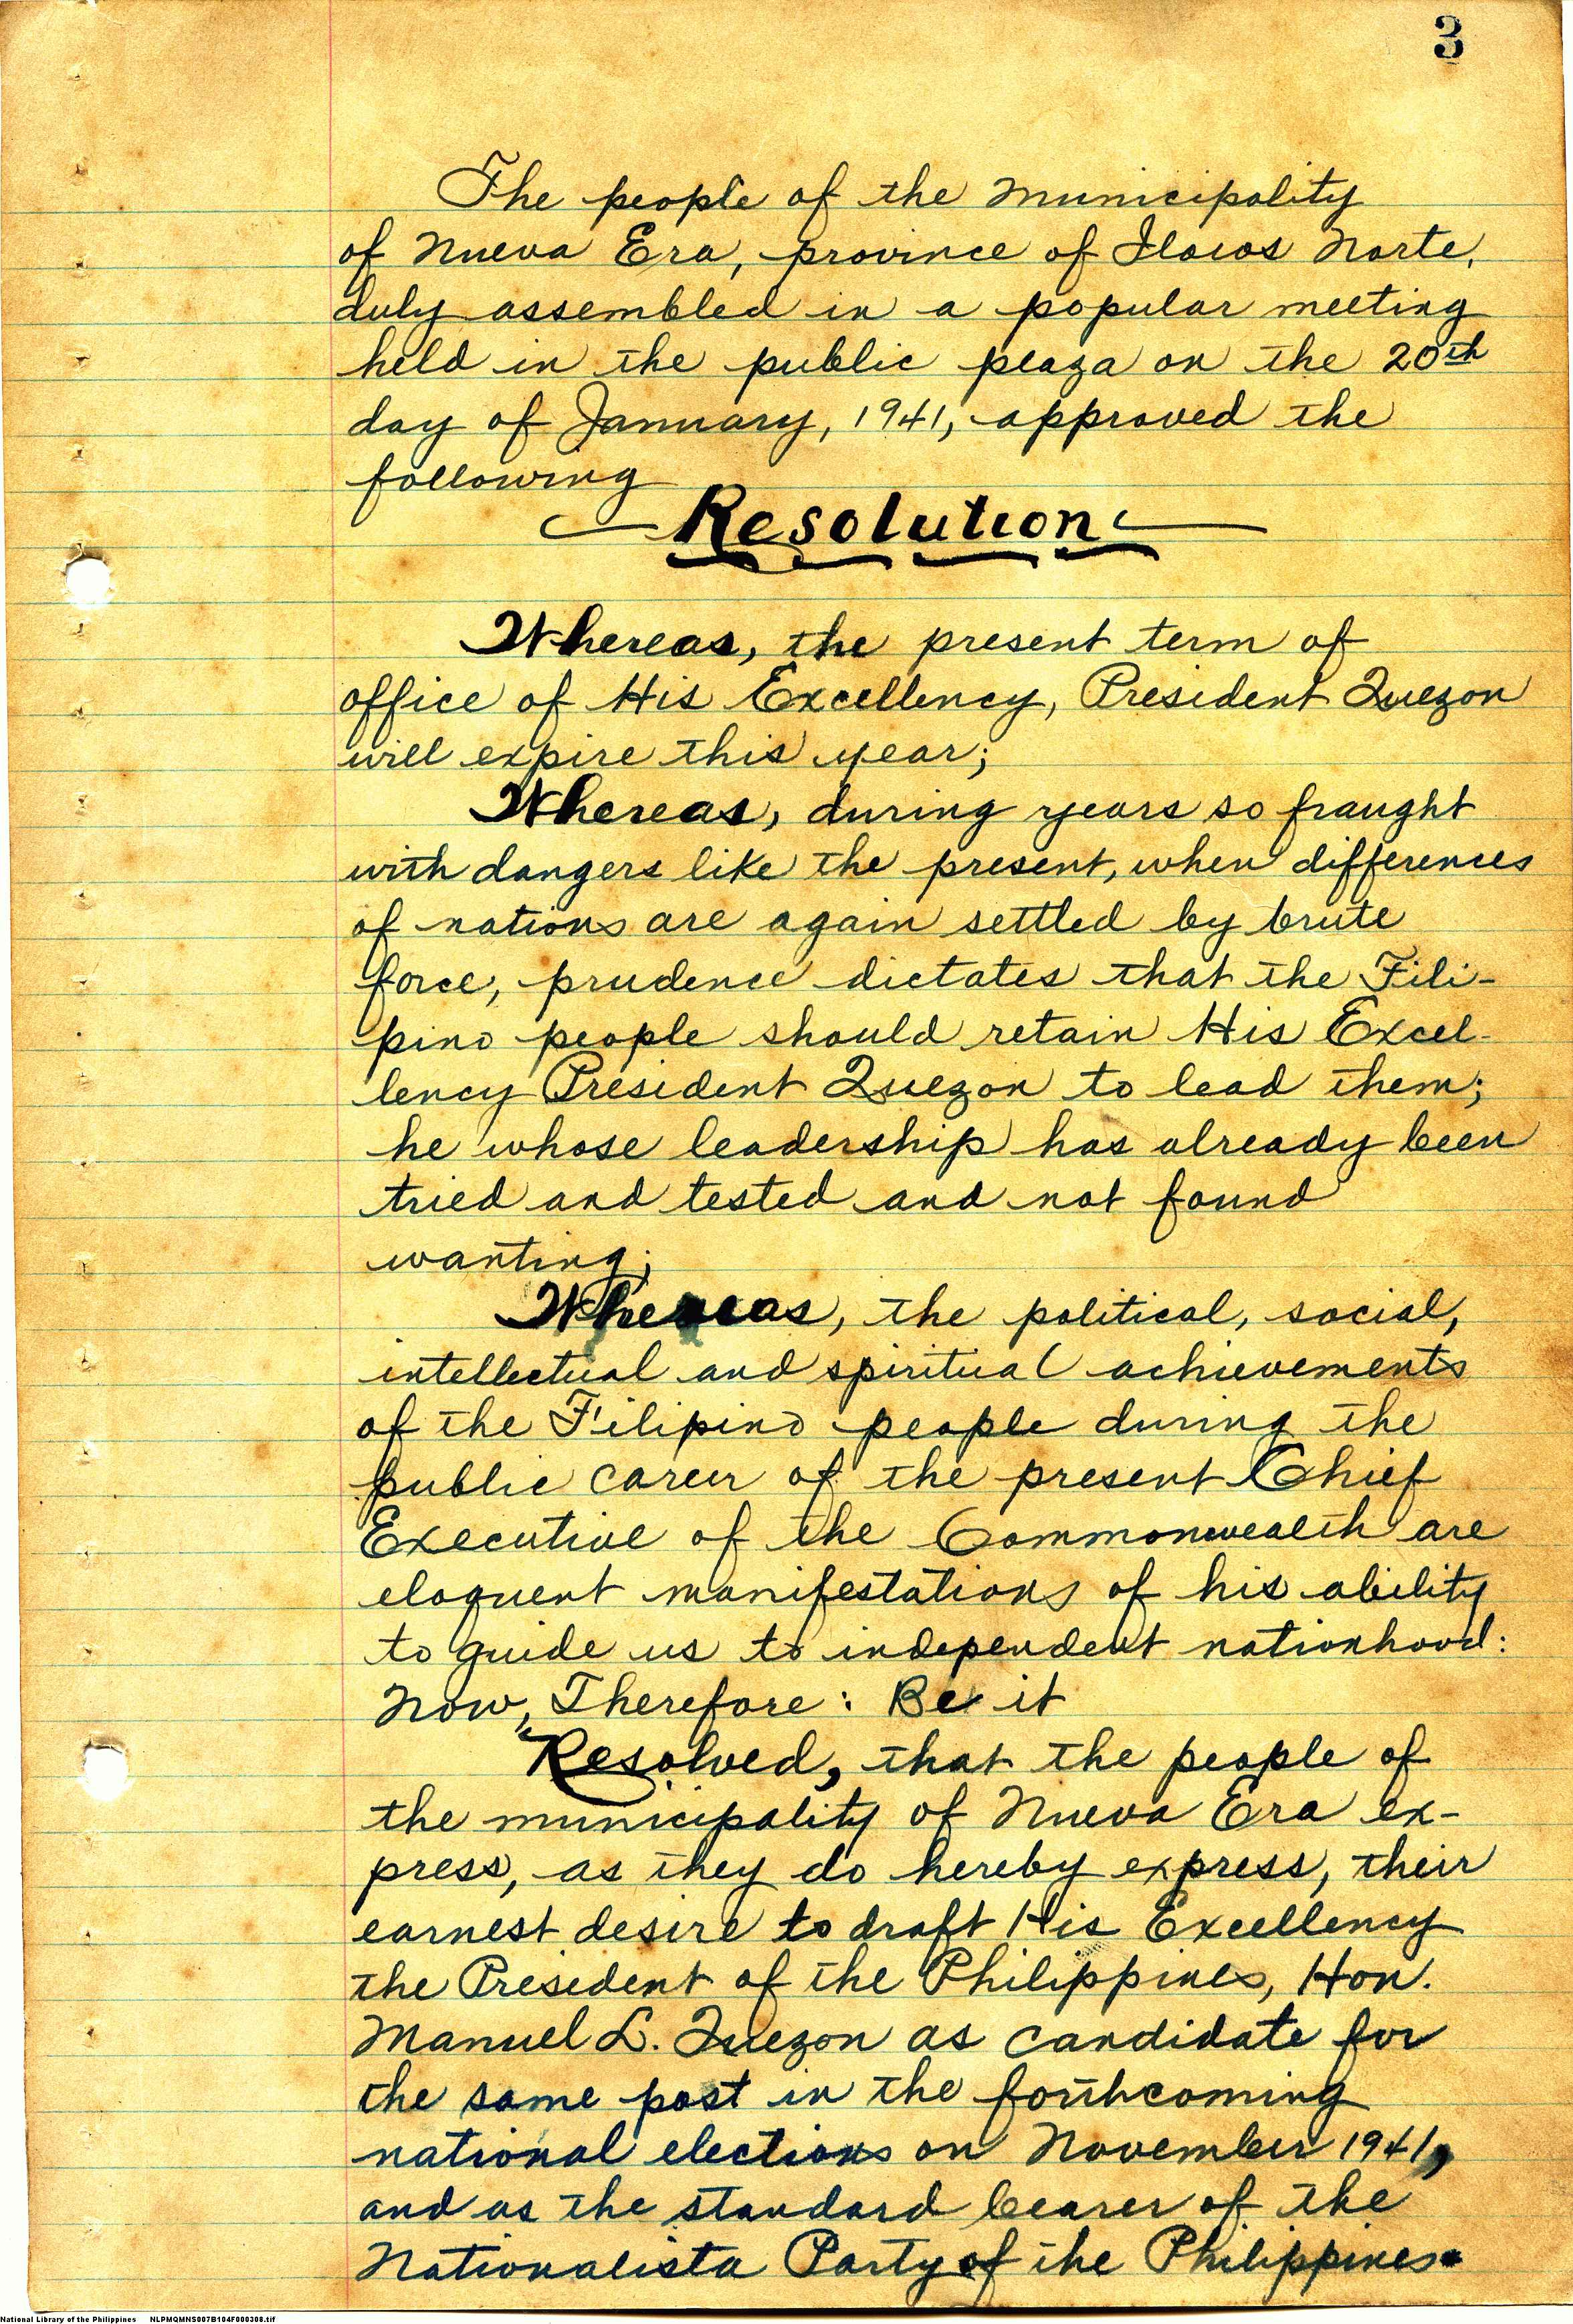 3
The people of the municipality
of Nueva Era, province of Ilocos Norte,
duly assembled in a popular meeting
held in the public plaza on the 20th
day of January, 1941, approved the
following
Resolution
Whereas, the present term of
office of His Excellency, President Quezon
will expire this year;
Whereas, during years so fraught
with dangers like the present, when differences
of nations are again settled by brute
force, prudence dictates that the Fili-
pino people should retain His Excel-
lency President Quezon to lead them;
he whose leadership has already been
tried and tested and not found
wanting;
Whereas, the political, social,
intellectual and spiritual achievements
of the Filipino people during the
public career of the present Chief
Executive of the Commonwealth are
eloquent manifestations of his ability
to guide us to independent nationhood:
Now, Therefore: Be it
Resolved, that the people of
the municipality of Nueva Era ex-
press, as they do hereby express, their
earnest desire to draft His Excellency
the President of the Philippines, Hon.
Manuel L. Quezon as candidate for
the same post in the forthcoming
national elections on November 1941,
and as the standard bearer of the
Nationalista Party of the Philippines.
National Library of the Philippines NLPMQMNS007B104F000308.tif